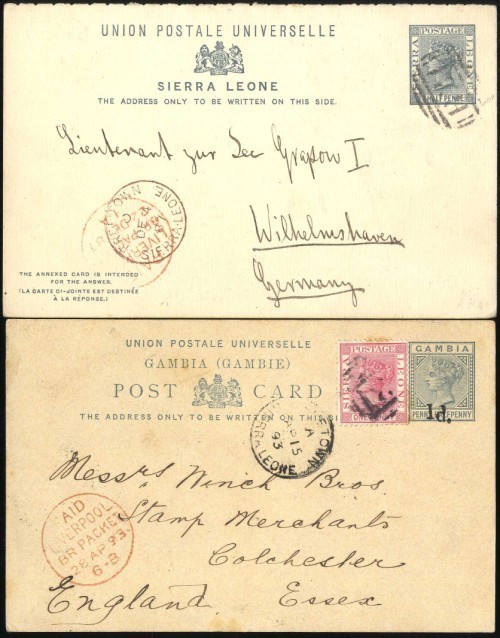 UNION POSTALE UNIVERSELLE
SIERRA LEONE
THE ADDRESS ONLY TO BE WRITTEN ON THIS SIDE.
POSTAGE
SIERRA
LEONE
HALF PENNY
Lieutenant zur See Grapow I
Wilhelmshaven
Germany
THE ANNEXED CARD IS INTENDED
FOR THE ANSWER.
(LA CARTE CI-JOINTE EST DESTINÉE
À LA RÉPONSE.)
UNION POSTALE UNIVERSELLE
GAMBIA (GAMBIE)
POST CARD
THE ADDRESS ONLY TO BE WRITTEN ON THIS SI
POSTAGE
SIERRA
LEONE
ONE
GAMBIA
PENNY
PENNY
1d.
FREETOWN
A
AP 15
93
SIERRA LEONE
Messrs Winch Bros.
Stamp Merchants
Colchester
England. Essex
PAID
LIVERPOOL
BR PACKET
28 AP 93
6-B